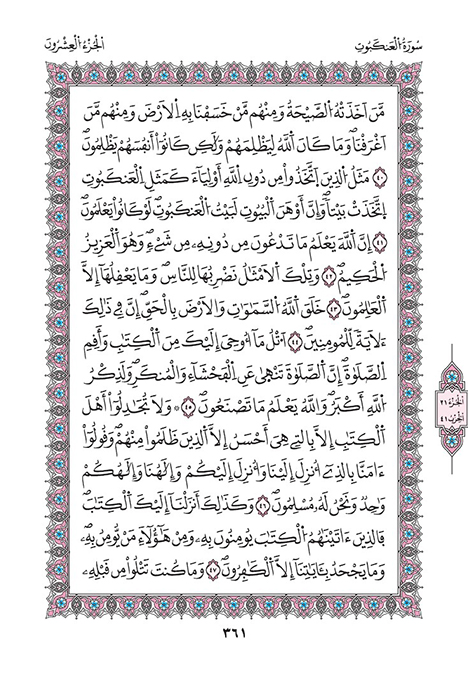 سُورَةُ الْعَنكَبُوتِ
الْجُزْءُ الْعِشْرُونَ
مَّنَ اَخَذَتْهُ الصَّيْحَةُ وَمِنْهُم مَّنْ خَسَفْنَا بِهِ الْأَرْضَ وَمِنْهُم مَّنَ
اَغْرَقْنَا وَمَا كَانَ اللَّهُ لِيَظْلِمَهُمْ وَلَٰكِن كَانُوا أَنفُسَهُمْ يَظْلِمُونَ
٤٠ مَثَلُ الَّذِينَ اَتَّخَذُوا مِن دُونِ اللَّهِ أَوْلِيَاءَ كَمَثَلِ الْعَنكَبُوتِ
اِتَّخَذَتْ بَيْتًا وَإِنَّ أَوْهَنَ الْبُيُوتِ لَبَيْتُ الْعَنكَبُوتِ لَوْ كَانُوا يَعْلَمُونَ
٤١ إِنَّ اللَّهَ يَعْلَمُ مَا تَدْعُونَ مِن دُونِهِ مِن شَيْءٍ وَهُوَ الْعَزِيزُ
الْحَكِيمُ ٤٢ وَتِلْكَ الْأَمْثَالُ نَضْرِبُهَا لِلنَّاسِ وَمَا يَعْقِلُهَا إِلَّا
الْعَالِمُونَ ٤٣ خَلَقَ اللَّهُ السَّمَاوَاتِ وَالْأَرْضَ بِالْحَقِّ إِنَّ فِي ذَٰلِكَ
لَآيَةً لِّلْمُومِنِينَ ٤٤ اَتْلُ مَا أُوحِيَ إِلَيْكَ مِنَ الْكِتَٰبِ وَأَقِمِ
الصَّلَوٰةَ إِنَّ الصَّلَوٰةَ تَنْهَىٰ عَنِ الْفَحْشَاءِ وَالْمُنكَرِ وَلَذِكْرُ
اللَّهِ أَكْبَرُ وَاللَّهُ يَعْلَمُ مَا تَصْنَعُونَ ٤٥ وَلَا تُجَٰدِلُوا أَهْلَ
الْكِتَٰبِ إِلَّا بِالَّتِي هِيَ أَحْسَنُ إِلَّا الَّذِينَ ظَلَمُوا مِنْهُمْ وَقُولُوا
ءَامَنَّا بِالَّذِي أُنزِلَ إِلَيْنَا وَأُنزِلَ إِلَيْكُمْ وَإِلَٰهُنَا وَإِلَٰهُكُمْ
وَاحِدٌ وَنَحْنُ لَهُ مُسْلِمُونَ ٤٦ وَكَذَٰلِكَ أَنزَلْنَا إِلَيْكَ الْكِتَٰبَ
فَالَّذِينَ ءَاتَيْنَٰهُمُ الْكِتَٰبَ يُومِنُونَ بِهِ وَمِنْ هَٰؤُلَاءِ مَنْ يُّومِنُ بِهِ
وَمَا يَجْحَدُ بِـَٔايَٰتِنَا إِلَّا الْكَٰفِرُونَ ٤٧ وَمَا كُنتَ تَتْلُوا مِن قَبْلِهِ
الجزء ٢١
الحزب ٤١
٣٦١